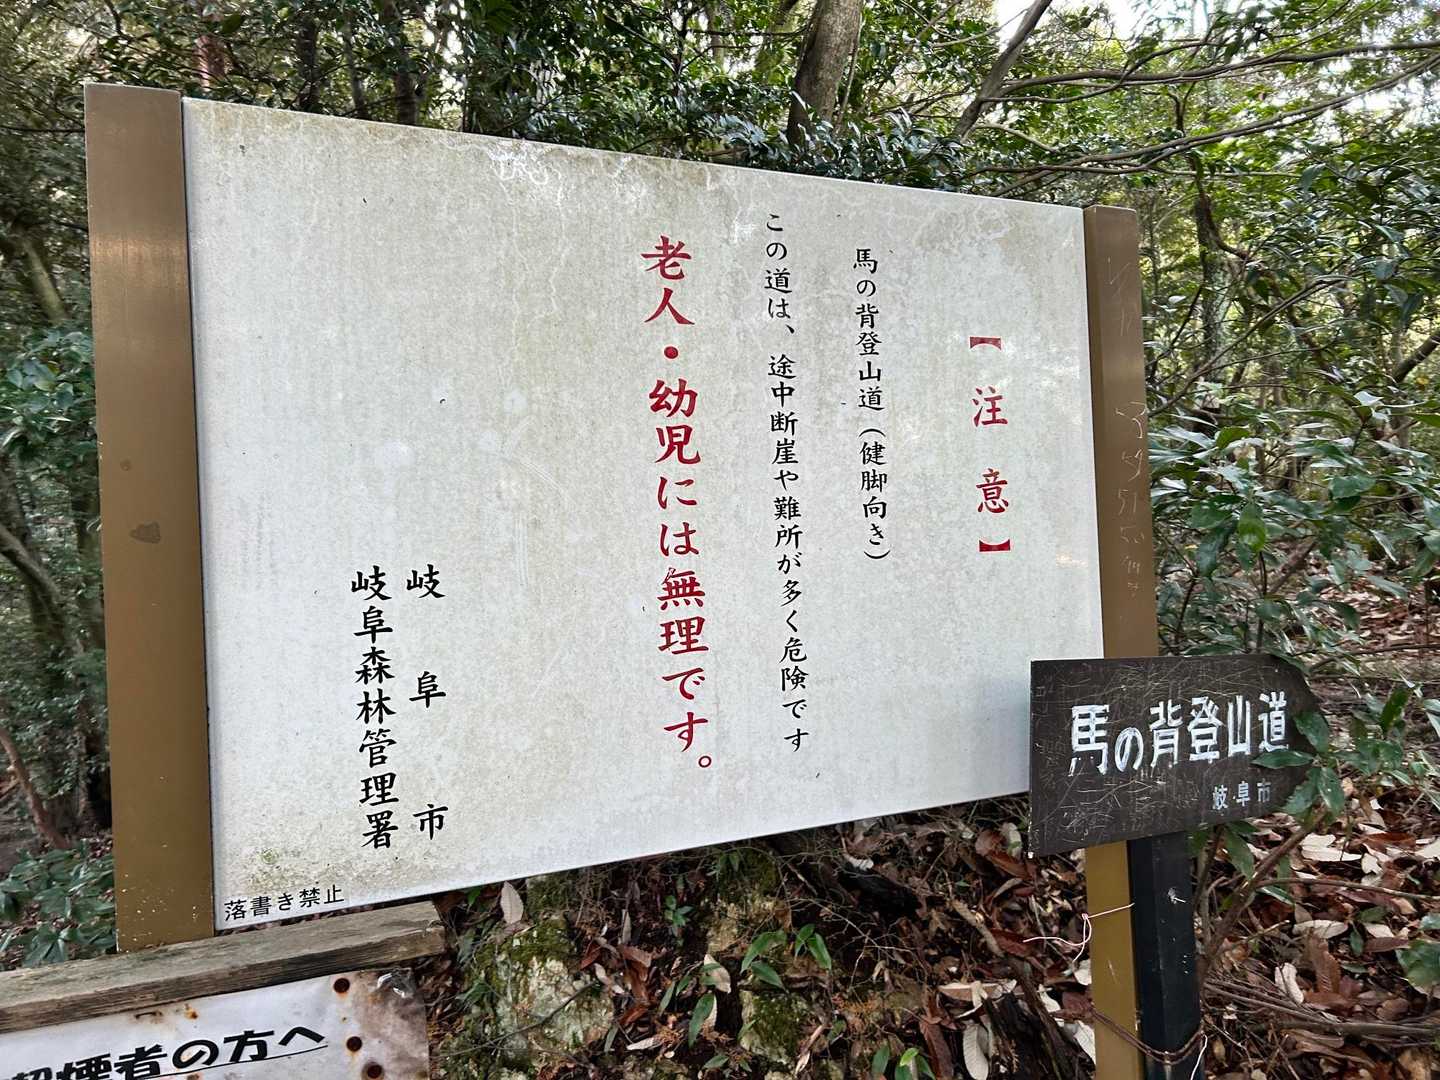 【注意】
馬の背登山道（健脚向き）
この道は、途中断崖や難所が多く危険です
老人・幼児には無理です。
岐阜市
岐阜森林管理署
落書き禁止
馬の背登山道
岐阜市
煙者の方へ